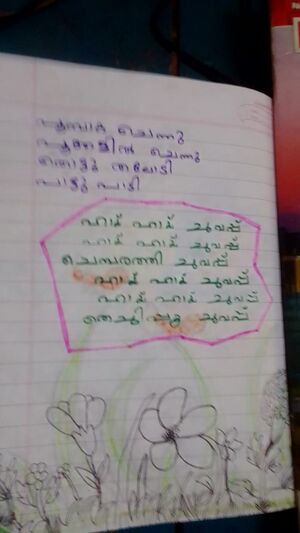 പൂമ്പാറ്റ ചെന്നു
പൂക്കളിൽ ചെന്നു
തൊട്ടു തലോടി
പാട്ടു പാടി
ഹായ് ഹായ് ചുവപ്പ്
ഹായ് ഹായ് ചുവപ്പ്
ചെമ്പരത്തി ചുവപ്പ്
ഹായ് ഹായ് ചുവപ്പ്
ഹായ് ഹായ് ചുവപ്പ്
തെച്ചിപ്പൂ ചുവപ്പ്